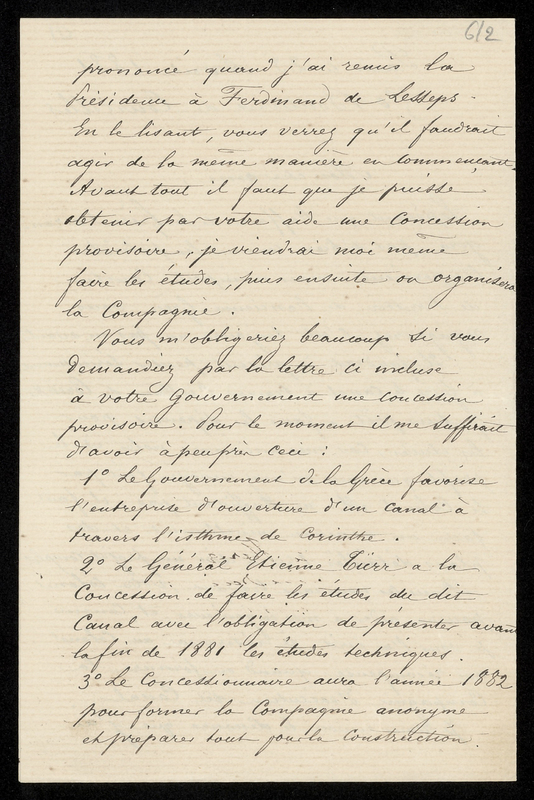 6/2
prononcé quand j'ai remis la
Présidence à Ferdinand de Lesseps -
En le lisant, vous verrez qu'il faudrait
agir de la même manière en commençant.
Avant tout il faut que je puisse
obtenir par votre aide une Concession
provisoire, je viendrai moi même
faire les études, puis ensuite on organisera
la Compagnie.
Vous m'obligeriez beaucoup si vous
demandiez par la lettre ci incluse
à votre Gouvernement une concession
provisoire. Pour le moment il me suffirait
d'avoir à peu près ceci :
1º Le Gouvernement de la Grèce favorise
l'entreprise d'ouverture d'un canal à
travers l'isthme de Corinthe.
2º Le Général Etienne Türr a la
Concession de faire les études du dit
Canal avec l'obligation de présenter avant
la fin de 1881 les études techniques.
3º Le Concessionnaire aura l'année 1882
pour former la Compagnie anonyme
et préparer tout pour la Construction